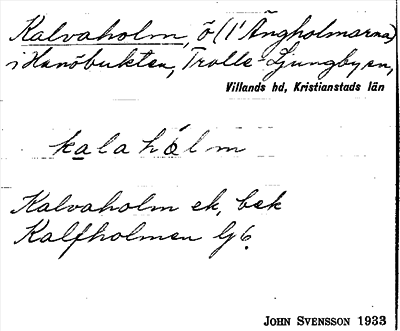 Kalvaholm, ö (1' Ängholmarna)
i Hanöbukten, Trolle-Ljungby sn,
Villands hd, Kristianstads län
kalahólm
Kalvaholm ek, bek
Kalfholmen Gj 6.
JOHN SVENSSON 1933